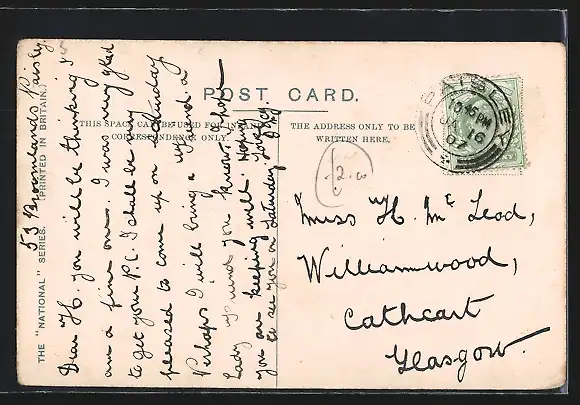 POST CARD.
THIS SPACE CAN BE USED FOR INLAND
CORRESPONDENCE ONLY.
THE ADDRESS ONLY TO BE
WRITTEN HERE.
THE "NATIONAL" SERIES. (PRINTED IN BRITAIN.)
PAISLEY
10 45 PM
16
07
2.00
Miss H. Mc Leod,
Williamwood,
Cathcart
Glasgow.
53 Broomlands Paisley
Dear H. you will be thinking I
am a fine one. I was very glad
to get your P.C. I shall be very
pleased to come up on Saturday
Perhaps I will bring a
Lady friend you know. Hope
you are keeping well. Hoping
to see you on Saturday